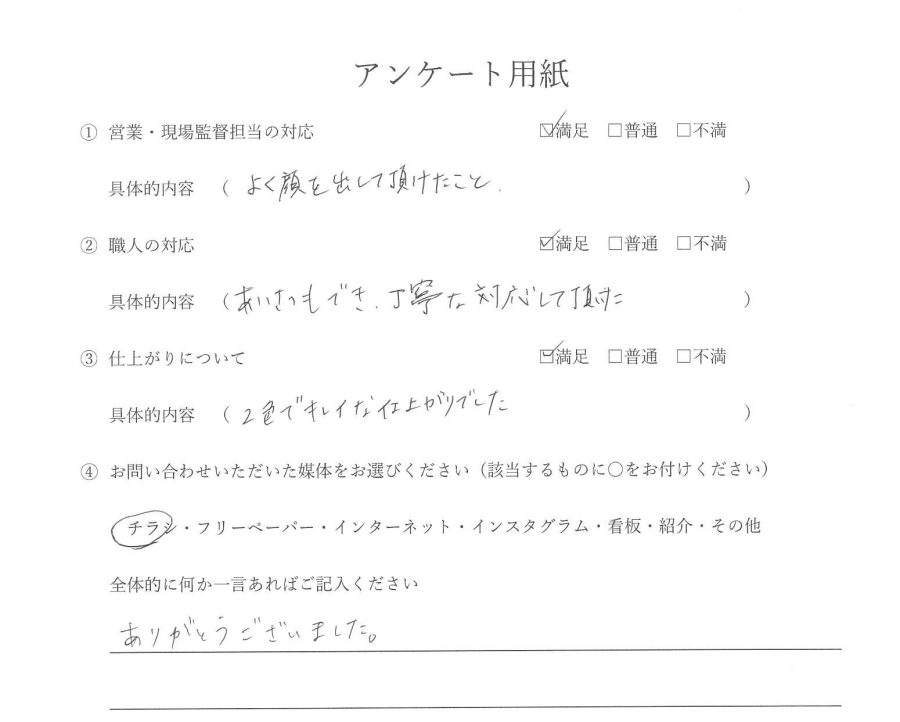 アンケート用紙
① 営業・現場監督担当の対応 ☑満足 □普通 □不満
具体的内容 （ よく顔を出して頂けたこと. ）
② 職人の対応 ☑満足 □普通 □不満
具体的内容 （ あいさつもでき、丁寧な対応して頂けた ）
③ 仕上がりについて ☑満足 □普通 □不満
具体的内容 （ 2色でキレイな仕上がりでした ）
④ お問い合わせいただいた媒体をお選びください（該当するものに〇をお付けください）
チラシ・フリーペーパー・インターネット・インスタグラム・看板・紹介・その他
全体的に何か一言あればご記入ください
ありがとうございました。